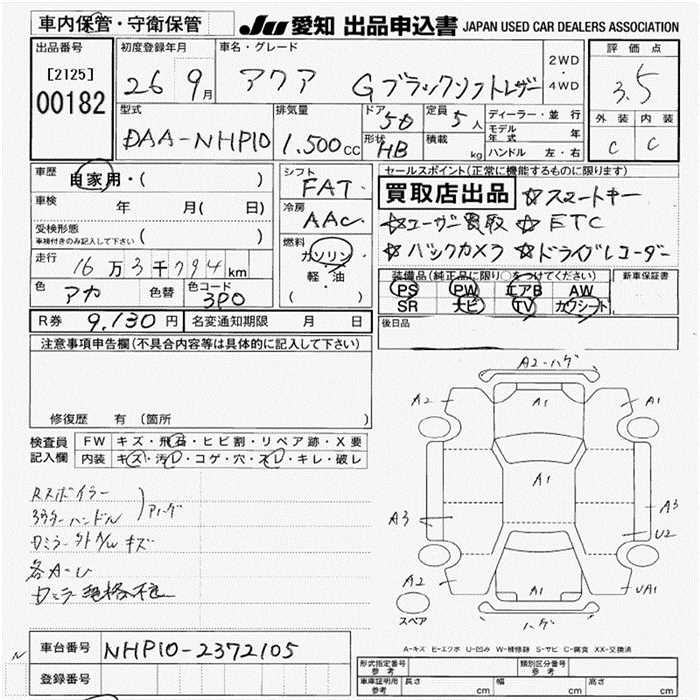 車内保管・守衛保管
JU 愛知 出品申込書 JAPAN USED CAR DEALERS ASSOCIATION
出品番号
[2125]
00182
初度登録年月
26 9月
車名・グレード
アクア Gブラックソフトレザー
2WD
・
4WD
評価点
3.5
外装 内装
C C
型式
DAA-NHP10
排気量
1.500cc
ドア
5D
定員
5人
形状
HB
積載
kg
ディーラー・並行
モデル年式 年
ハンドル 左・右
車歴
自家用・( )
車検 年 月( 日)
受検形態
車検付きのみ記入して下さい ( )
走行 16万3千794km
色 アカ 色替 色コード 3P0
シフト
FAT
冷房
AAC
燃料
ガソリン
軽・油
( )
セールスポイント(正常に機能するものに限ります)
買取店出品 ☆スマートキー
☆ユーザー買取 ☆ETC
☆バックカメラ ☆ドライブレコーダー
装備品(純正品に限り○をつけてください) 新車保証書
PS PW エアB AW
SR ナビ TV カワシート
後日品
R券 9.130円 名変通知期限 月 日
注意事項申告欄(不具合内容等は具体的に記入して下さい)
修復歴 有(箇所 )
検査員記入欄
FW キズ・飛石・ヒビ割・リペア跡・X要
内装 キズ・汚レ・コゲ・穴・スレ・キレ・破レ
Rスポイラー
3ヶターハンドル
アハゲ
Dミラー外H/Wキズ
各A-U
A2-ハゲ
A2 A1 A1
A1
A3 A3
U2
A2 A1 UA1
ハゲ
スペア
A-キズ E-エクボ U-凹み W-補修跡 S-サビ C-腐食 XX-交換済
車台番号 NHP10-2372105
登録番号
N
形式指定番号 参考
類別区分番号 参考
車庫証明用 参考 長さ cm 幅 cm 高さ cm